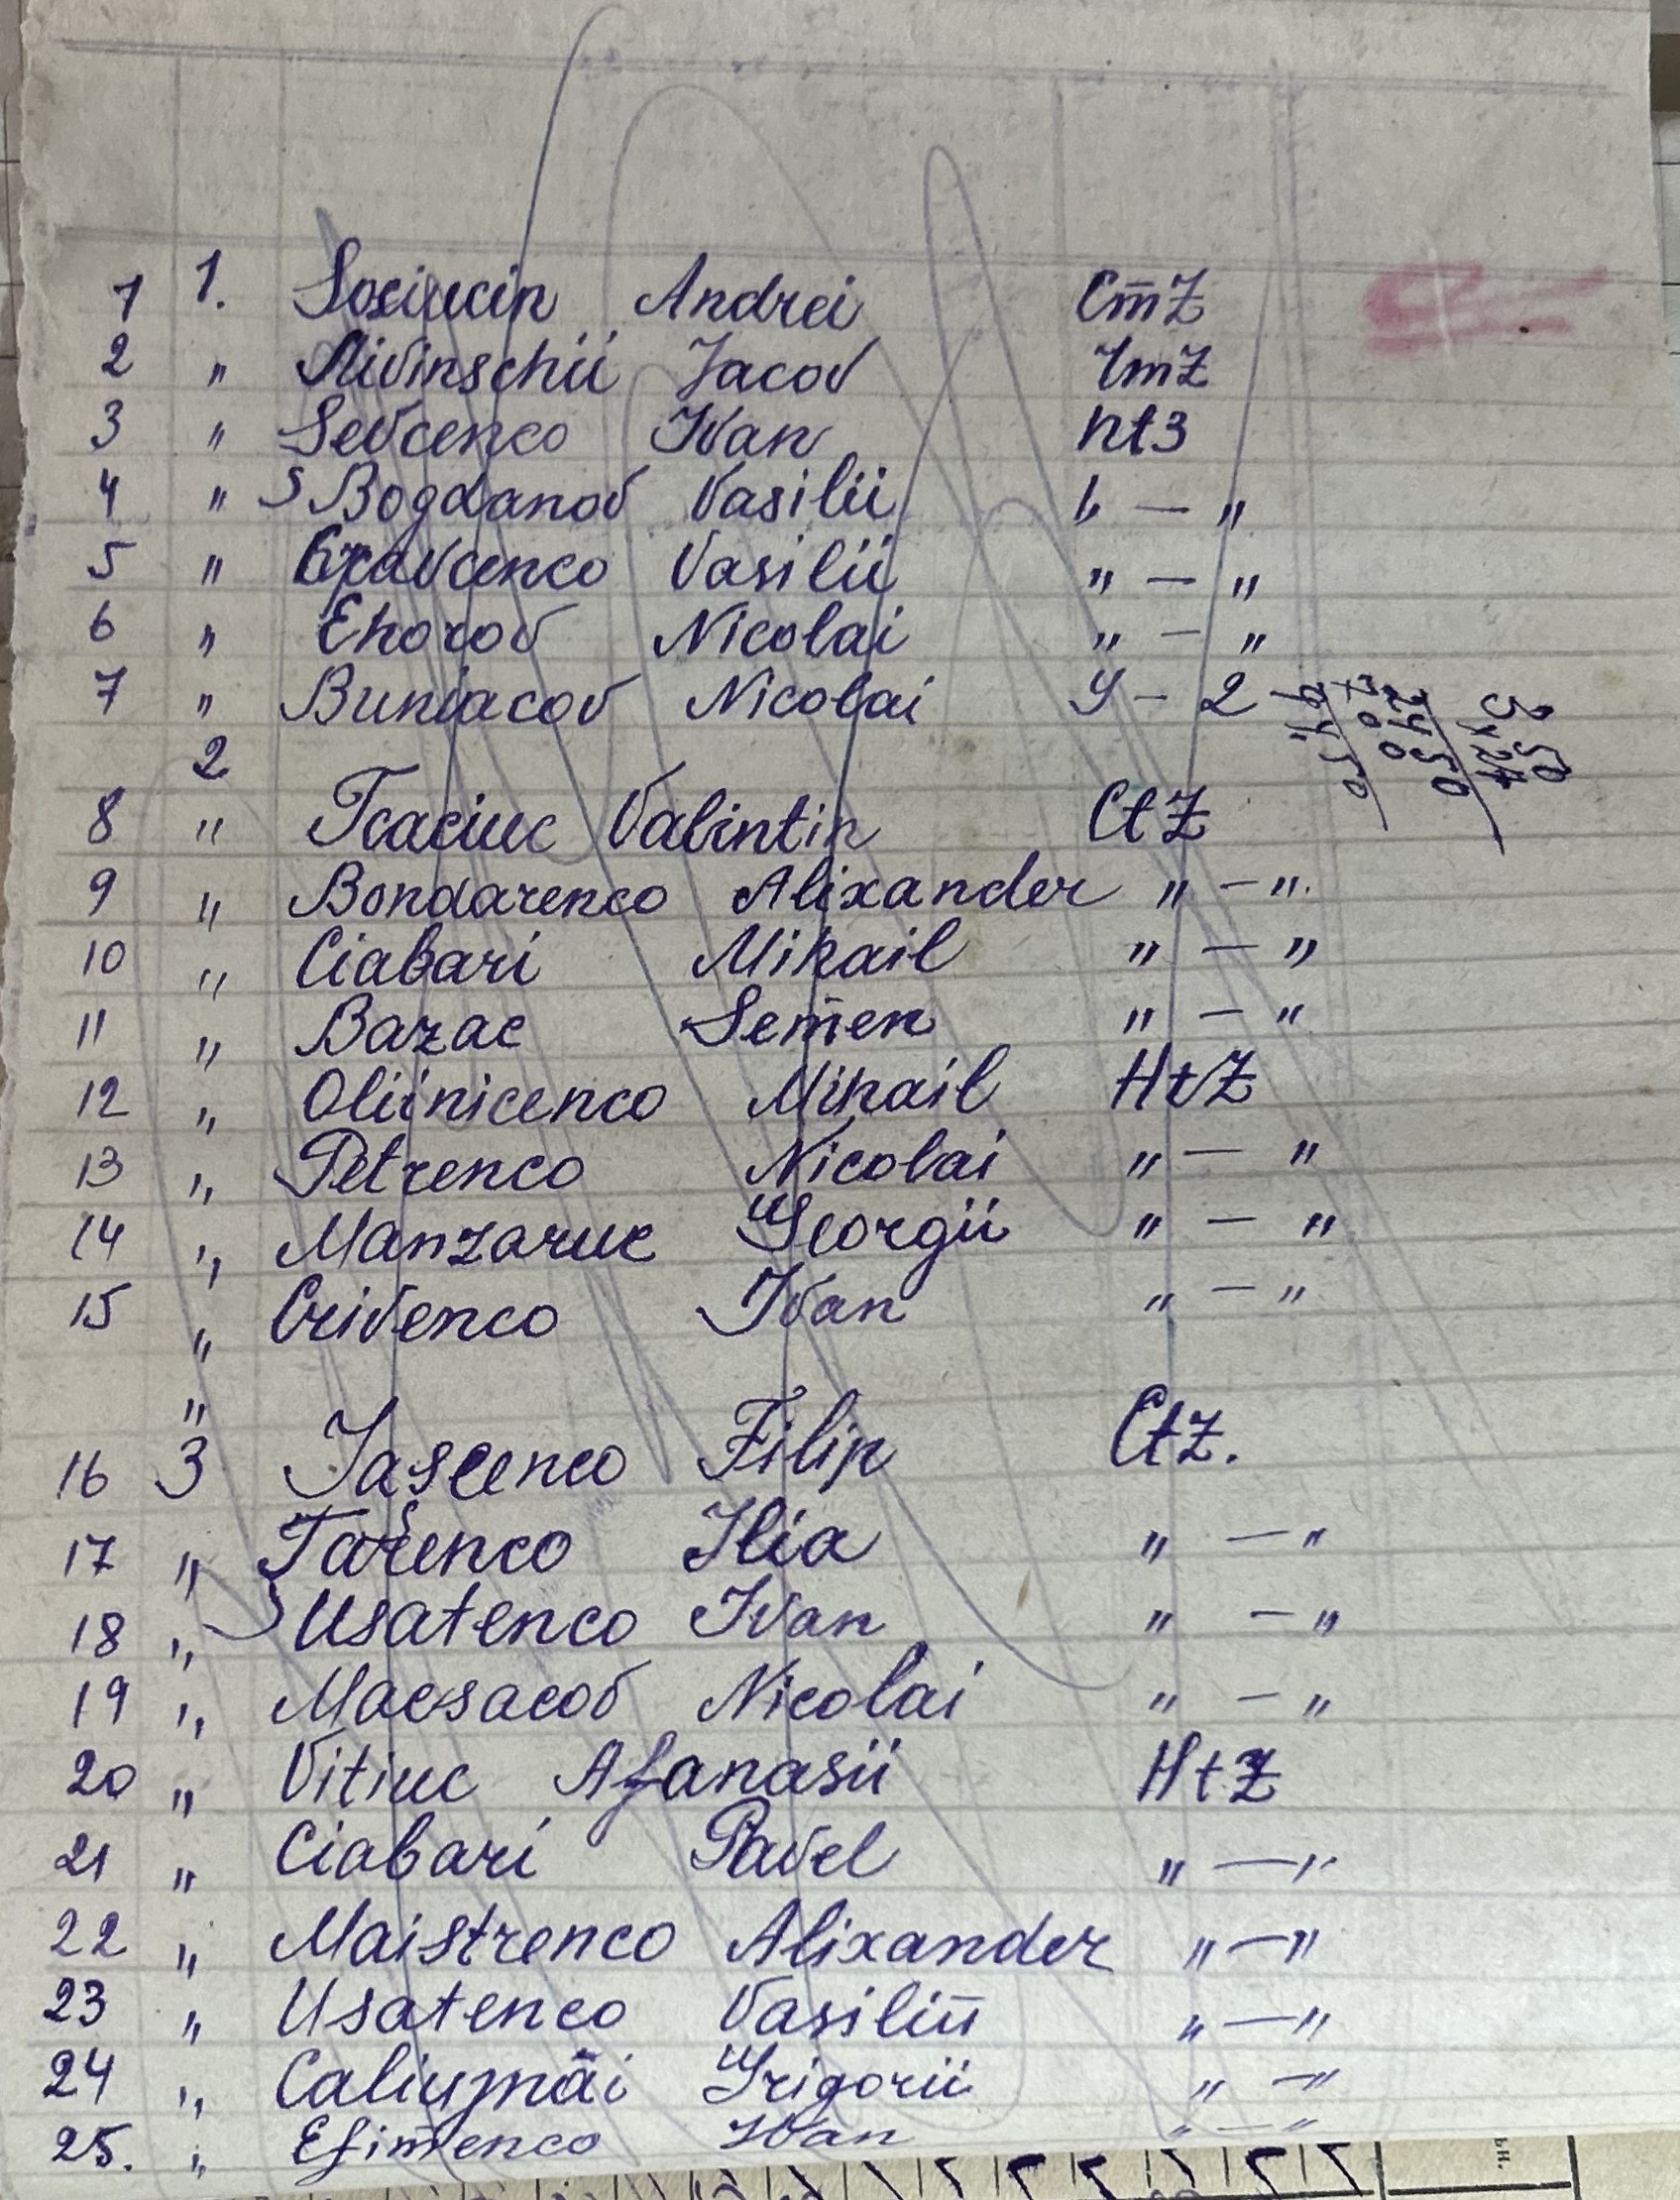 1 1. Sociucin Andrei CmZ
2 " Nivinschii Jacov ImZ
3 " Sevcenco Ivan Nt3
4 " Bogdanov Vasilii " — "
5 " Cravcenco Vasilii " — "
6 " Ehorov Nicolai " — "
7 " Buniacov Nicolai y - 2
2
8 " Tcaciuc Valintin CtZ
9 " Bondarenco Alixander " — ".
10 " Ciabari Mihail " — "
11 " Bazac Semen " — "
12 " Oliinicenco Mihail HtZ
13 " Petrenco Nicolai " — "
14 " Manzaruc Georgii " — "
15 " Crivenco Ivan " — "
"
16 3 Jascenco Filip CtZ.
17 " Tarenco Ilia " — "
18 " Usatenco Ivan " — "
19 " Macsacov Nicolai " — "
20 " Vitiuc Afanasii HtZ
21 " Ciabari Pavel " — "
22 " Maistrenco Alixander " — "
23 " Usatenco Vasilii " — "
24 " Caliujnai Grigorii " — "
25. " Efimenco Ivan " — "